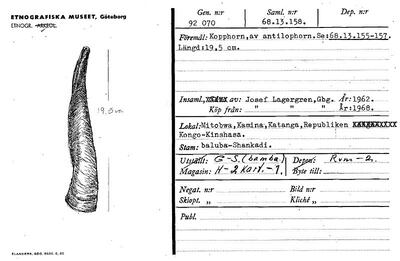 ETNOGRAFISKA MUSEET, Göteborg
ETNOGR.
19,5 cm
Gen. n:r Saml. n:r Dep. n:r
92 070 68.13.158.
Föremål: Kopphorn, av antilophorn. Se: 68.13.155-157.
Längd: 19,5 cm.
Insaml. av: Josef Lagergren, Gbg. År: 1962.
Köp från: " " " År: 1968.
Lokal: Mitobwa, Kamina, Katanga, Republiken
Kongo-Kinshasa.
Stam: baluba-Shankadi.
Utställt: G-S. (bamba) Depon: Rum-2.
Magasin: H-2 Kart.-1. Byte till:
Negat. n:r Bild n:r
Skiopt. » Kliché »
Publ.